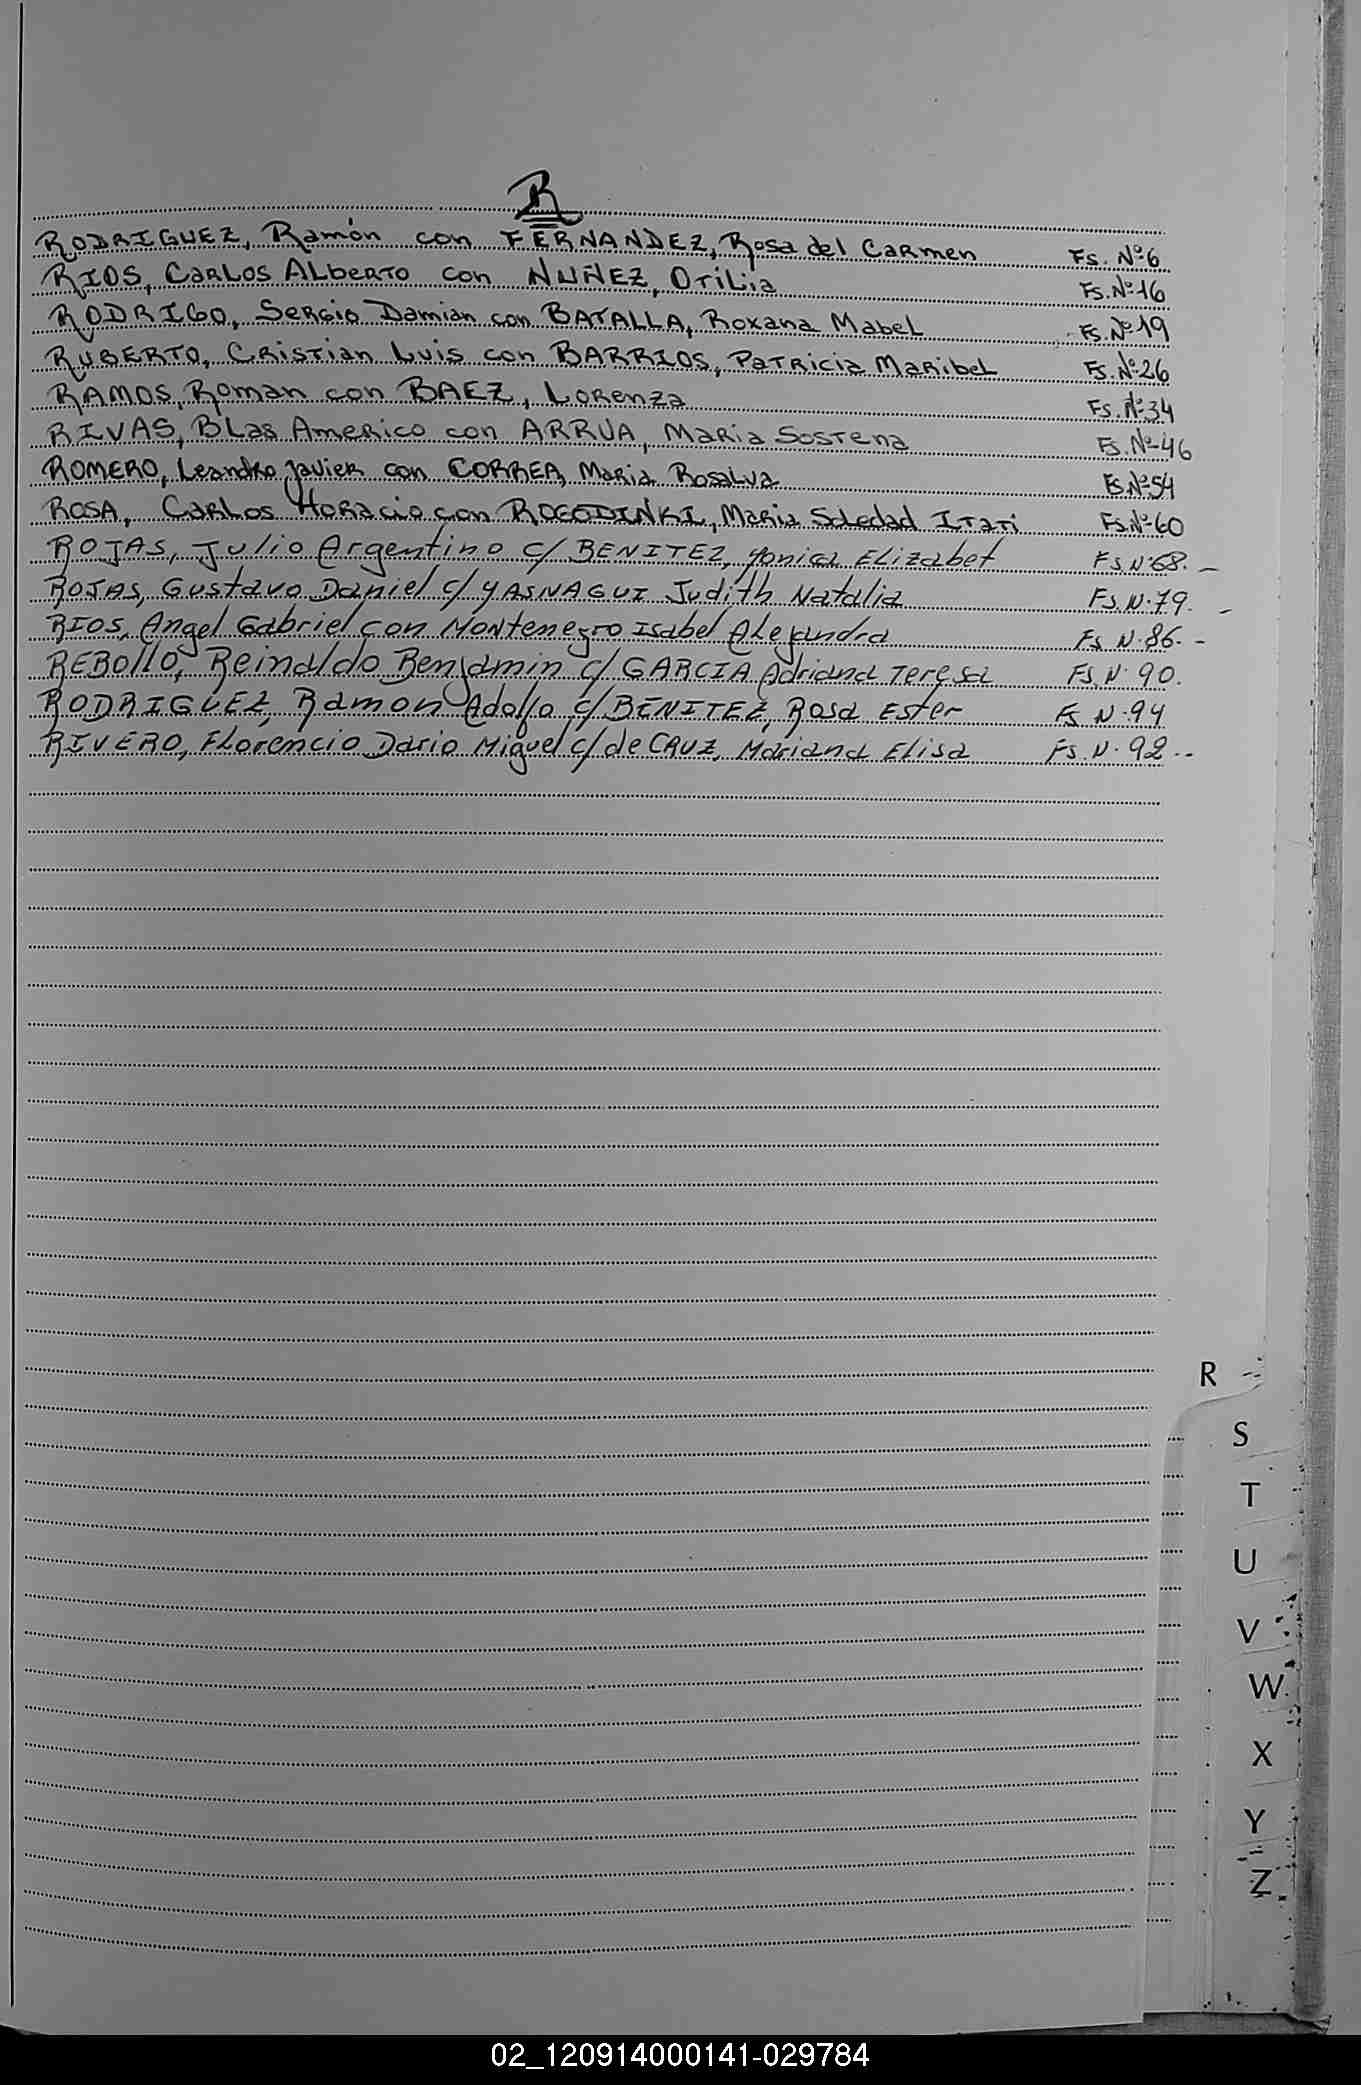 R
RODRIGUEZ, Ramón con FERNANDEZ, Rosa del Carmen Fs. Nº 6
RIOS, Carlos Alberto con NUÑEZ, Otilia Fs. Nº 16
RODRIGO, Sergio Damian con BATALLA, Roxana Mabel Fs. Nº 19
RUBERTO, Cristian Luis con BARRIOS, Patricia Maribel Fs. Nº 26
RAMOS, Roman con BAEZ, Lorenza Fs. Nº 34
RIVAS, Blas Americo con ARRUA, Maria Sostena Fs. Nº 46
ROMERO, Leandro Javier con CORREA, Maria Rosalva Fs. Nº 54
ROSA, Carlos Horacio con Maria Soledad Itati Fs. Nº 60
ROJAS, Julio Argentino c/ BENITEZ, Yonica Elizabet Fs. N. 68. -
ROJAS, Gustavo Daniel c/ YASNAGUI Judith Natalia Fs. N. 79. -
RIOS, Angel Gabriel con Montenegro Isabel Alejandra Fs. N. 86. -
REBOLLO, Reinaldo Benjamin c/ GARCIA Adriana Teresa Fs. N. 90.
RODRIGUEZ, Ramon Adolfo c/ BENITEZ, Rosa Ester Fs N. 94
RIVERO, Florencio Dario Miguel c/ de CRUZ, Mariana Elisa Fs. N. 92 --
R
S
T
U
V
W
X
Y
Z
02_120914000141-029784